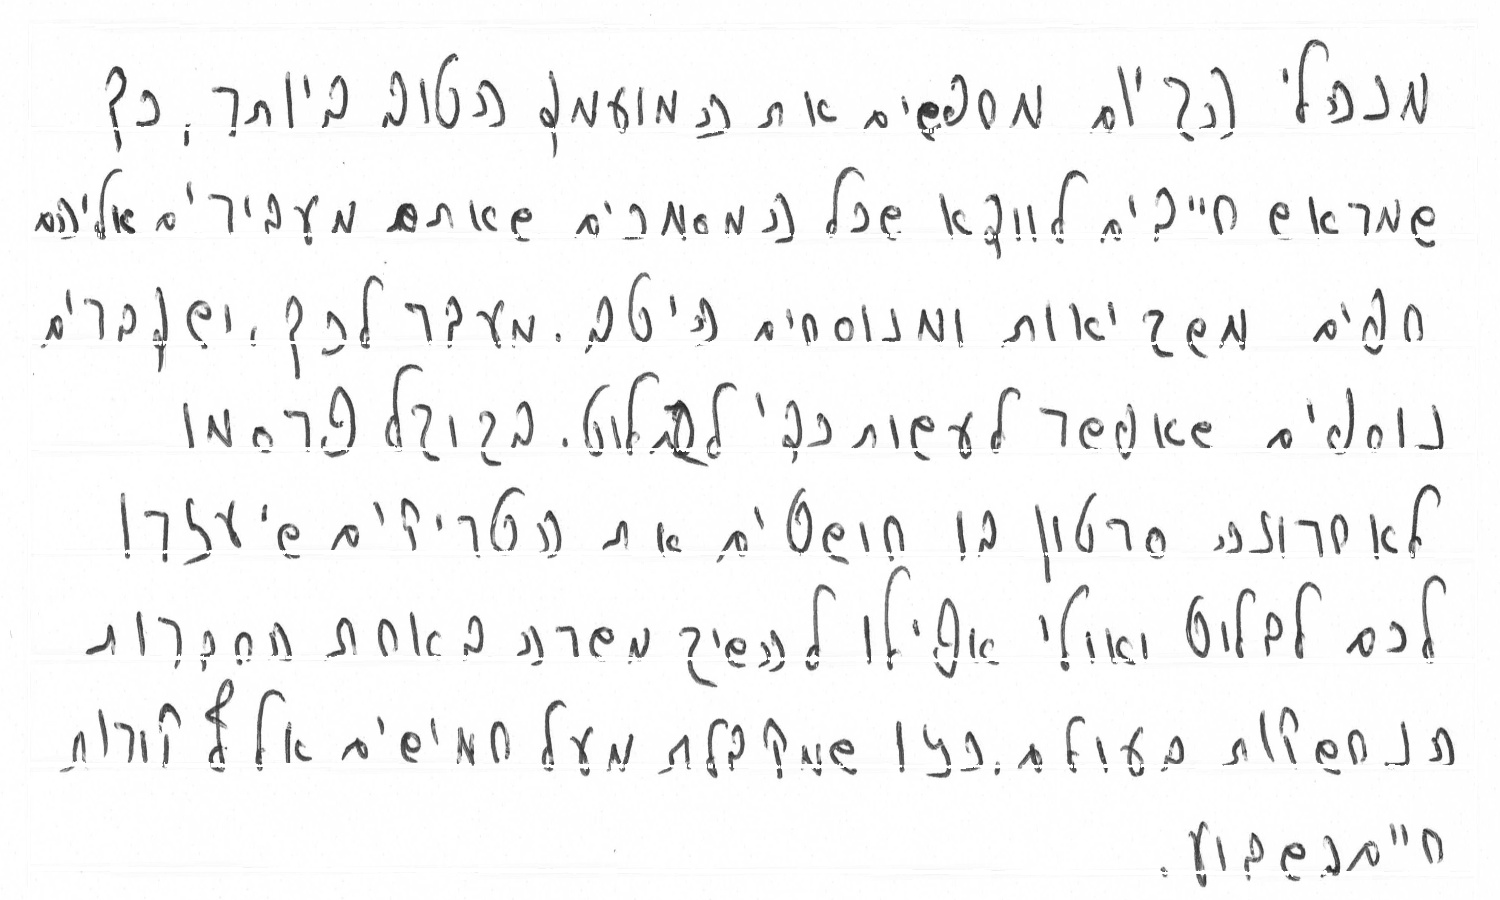 מנהלי הגיוס מחפשים את המועמד הטוב ביותר, כך
שמראש חייבים לוודא שכל המסמכים שאתם מעבירים אליהם
חפים משגיאות ומנוסחים היטב. מעבר לכך, יש דברים
נוספים שאפשר לעשות כדי לבלוט. בגוגל פרסמו
לאחרונה סרטון בו חושפים את הטריקים שיעזרו
לכם לבלוט ואולי אפילו להשיג משרה באחת החברות
הנחשקות בעולם. כזו שמקבלת מעל חמישים אלף קורות
חיים בשבוע.